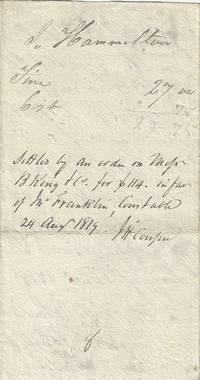 J. Hammilton
Fine 27 00
Cost .75
27.75
Settled by an order on Messrs
B King & Co. for $114. in fav
of Mr Franklin, Constable
24 Augt 1819.